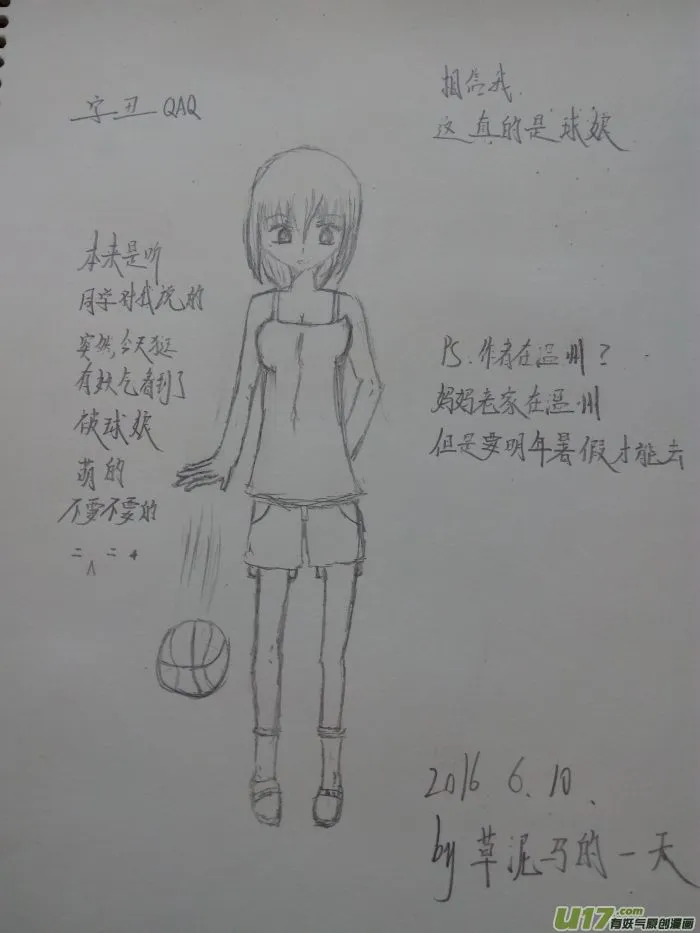 字丑 QAQ
相信我
这真的是球娘
本来是听
同学对我说的
突然,今天逛
有妖气看到了
使球娘
萌的
不要不要的
PS.作者在温州?
妈妈老家在温州
但是要明年暑假才能去
2016 6.10.
by 草泥马的一天
U17.com
有妖气原创漫画